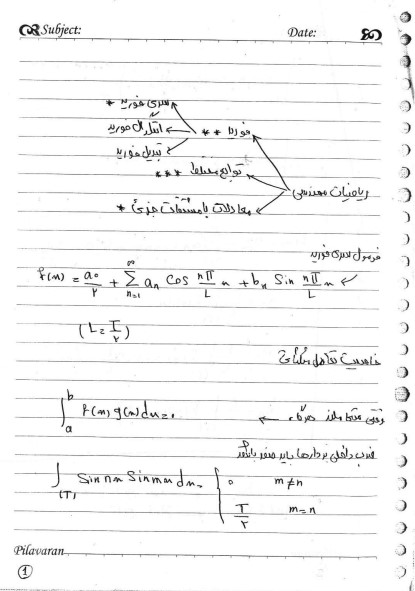 Subject: Date:
سری فوریه *
انتگرال فوریه
فوریه **
تبدیل فوریه
توابع مختلط ***
ریاضیات مهندسی
معادلات با مشتقات جزئی *
فرمول سری فوریه
f(x) = a₀/۲ + ∑_{n=1}^{∞} aₙ cos nπ/L x + bₙ sin nπ/L x
(L = T/۲)
خاصیت تعامد
وقتی متعامدند هرگاه
∫_a^b f(x) g(x) dx = 0
ضرب داخلی بردارها باید صفر باشد
∫_(T) sin nx sin mx dx = { 0 m≠n
T/۲ m=n
Pilavaran
1